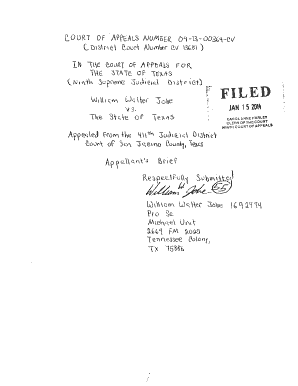 COURT OF APPEALS NUMBER 09-13-00364-CV
(District Court Number CV 13681)
IN THE COURT OF APPEALS FOR
THE STATE OF TEXAS
(Ninth Supreme Judicial District)
William Walter Jobe
vs.
The State of Texas
FILED
JAN 15 2014
CAROL ANNE HARLEY
CLERK OF THE COURT
NINTH COURT OF APPEALS
Appealed from the 411th Judicial District
Court of San Jacinto County, Texas
Appellant's Brief
Respectfully Submitted
William W. Jobe
William Walter Jobe 1692974
Pro Se
Michael Unit
2664 FM 2054
Tennessee Colony,
TX 75886